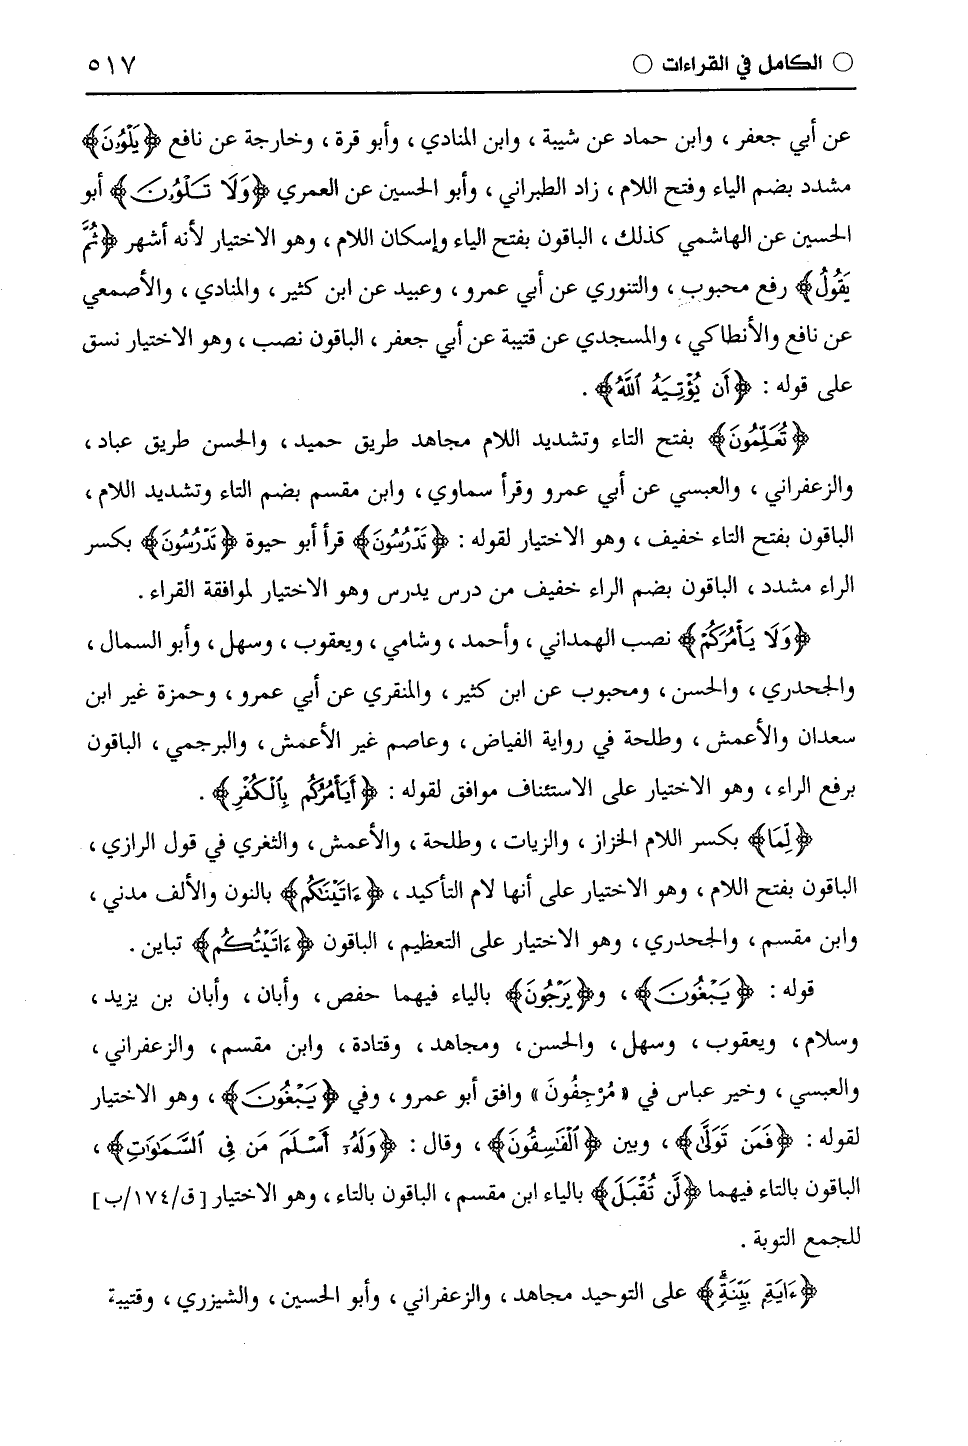 ○ الكامل في القراءات ○ ٥١٧
عن أبي جعفر ، وابن حماد عن شيبة ، وابن المنادي ، وأبو قرة ، وخارجة عن نافع ﴿يَلْوُۥنَ﴾
مشدد بضم الياء وفتح اللام ، زاد الطبراني ، وأبو الحسين عن العمري ﴿وَلَا تَلْوُۥنَ﴾ أبو
الحسين عن الهاشمي كذلك ، الباقون بفتح الياء وإسكان اللام ، وهو الاختيار لأنه أشهر ﴿ثُمَّ
يَقُولُ﴾ رفع محبوب ، والتنوري عن أبي عمرو ، وعبيد عن ابن كثير ، والمنادي ، والأصمعي
عن نافع والأنطاكي ، والمسجدي عن قتيبة عن أبي جعفر ، الباقون نصب ، وهو الاختيار نسق
على قوله : ﴿أَن يُؤْتِيَهُ ٱللَّهُ﴾ .
﴿تُعَلِّمُونَ﴾ بفتح التاء وتشديد اللام مجاهد طريق حميد ، والحسن طريق عباد ،
والزعفراني ، والعبسي عن أبي عمرو وقرأ سماوي ، وابن مقسم بضم التاء وتشديد اللام ،
الباقون بفتح التاء خفيف ، وهو الاختيار لقوله : ﴿تَدْرُسُونَ﴾ قرأ أبو حيوة ﴿تَدْرُسُونَ﴾ بكسر
الراء مشدد ، الباقون بضم الراء خفيف من درس يدرس وهو الاختيار لموافقة القراء .
﴿وَلَا يَأْمُرَكُمْ﴾ نصب الهمداني ، وأحمد ، وشامي ، ويعقوب ، وسهل ، وأبو السمال ،
والجحدري ، والحسن ، ومحبوب عن ابن كثير ، والمنقري عن أبي عمرو ، وحمزة غير ابن
سعدان والأعمش ، وطلحة في رواية الفياض ، وعاصم غير الأعمش ، والبرجمي ، الباقون
برفع الراء ، وهو الاختيار على الاستئناف موافق لقوله : ﴿أَيَأْمُرُكُم بِٱلْكُفْرِ﴾ .
﴿لِّمَا﴾ بكسر اللام الخزاز ، والزيات ، وطلحة ، والأعمش ، والثغري في قول الرازي ،
الباقون بفتح اللام ، وهو الاختيار على أنها لام التأكيد ، ﴿ءَاتَيْنَٰكُم﴾ بالنون والألف مدني ،
وابن مقسم ، والجحدري ، وهو الاختيار على التعظيم ، الباقون ﴿ءَاتَيْتُكُم﴾ تباين .
قوله : ﴿يَبْغُونَ﴾ ، و﴿يَرْجُونَ﴾ بالياء فيهما حفص ، وأبان ، وأبان بن يزيد ،
وسلام ، ويعقوب ، وسهل ، والحسن ، ومجاهد ، وقتادة ، وابن مقسم ، والزعفراني ،
والعبسي ، وخير عباس في « مُرْجِفُونَ » وافق أبو عمرو ، وفي ﴿يَبْغُونَ﴾ ، وهو الاختيار
لقوله : ﴿فَمَن تَوَلَّىٰ﴾ ، وبين ﴿ٱلْفَٰسِقُونَ﴾ ، وقال : ﴿وَلَهُۥٓ أَسْلَمَ مَن فِى ٱلسَّمَٰوَٰتِ﴾ ،
الباقون بالتاء فيهما ﴿لَّن تُقْبَلَ﴾ بالياء ابن مقسم ، الباقون بالتاء ، وهو الاختيار [ ق/١٧٤/ب ]
للجمع التوبة .
﴿ءَايَةٍ بَيِّنَةٍ﴾ على التوحيد مجاهد ، والزعفراني ، وأبو الحسين ، والشيزري ، وقتيبة